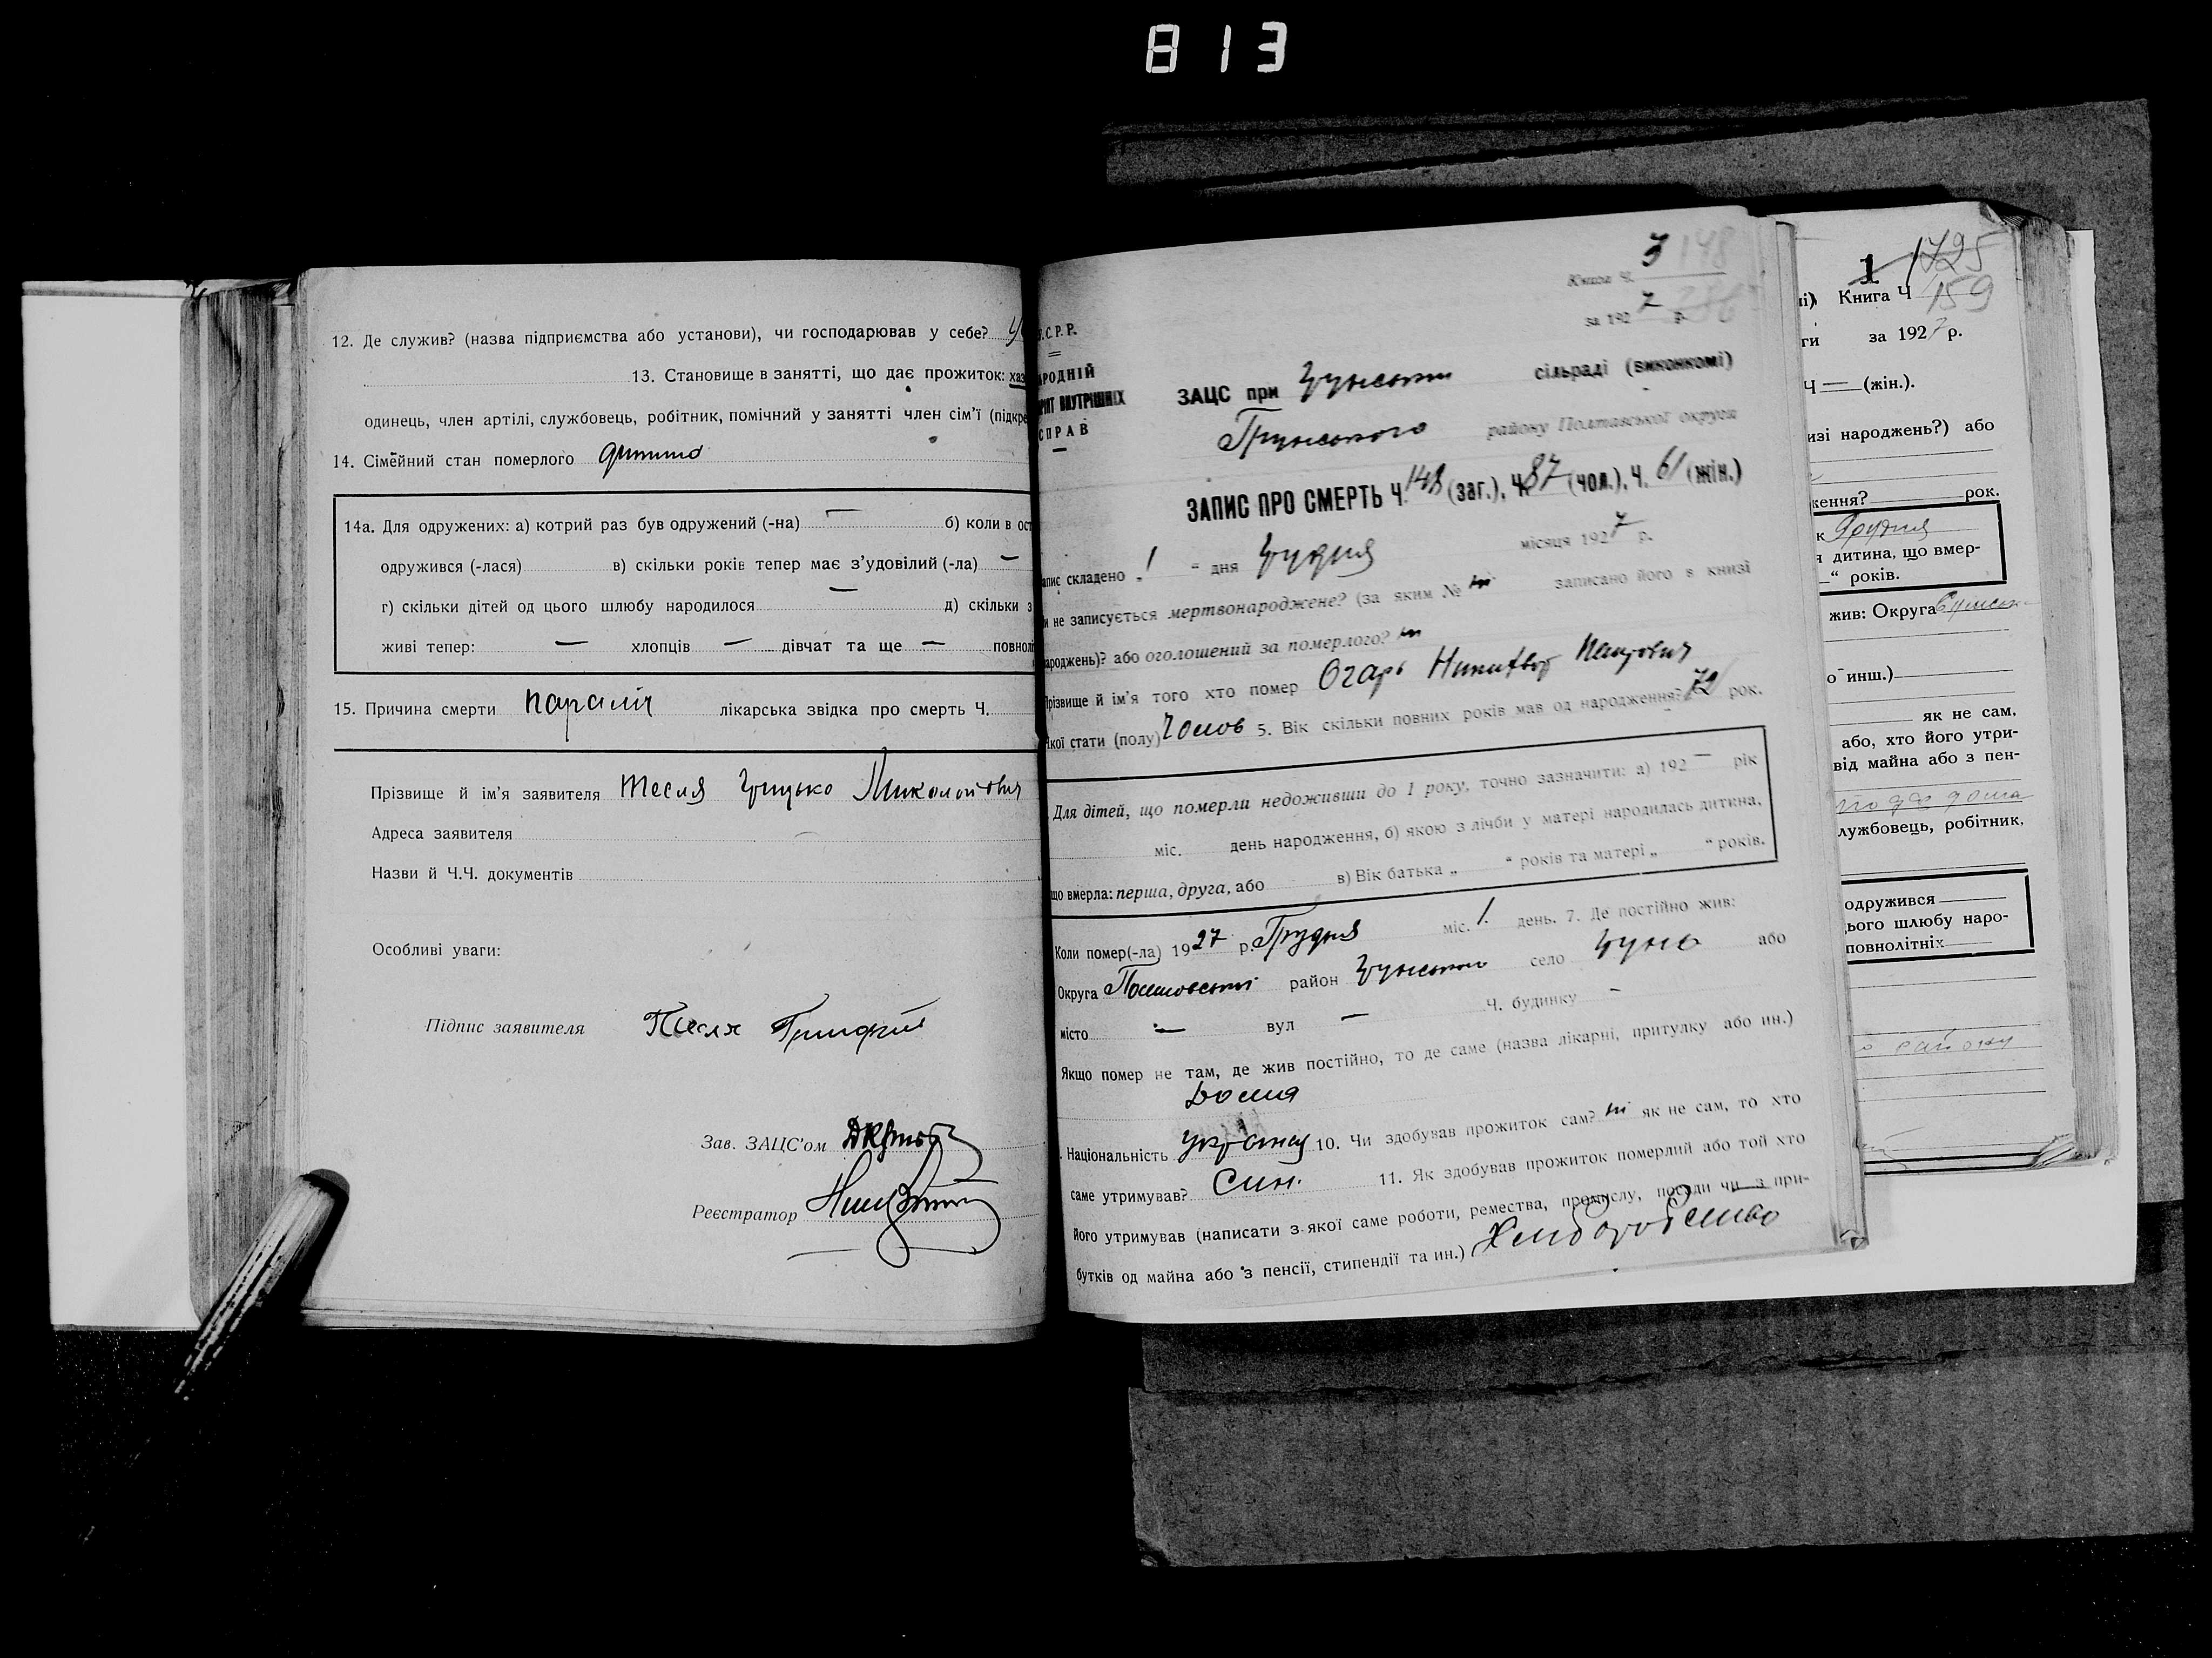 813
12. Де служив? (назва підприємства або установи), чи господарював у себе?
13. Становище в занятті, що дає прожиток: хаз
одинець, член артілі, службовець, робітник, помічний у занятті член сім'ї (підкре
14. Сімейний стан померлого дитина
14а. Для одружених: а) котрий раз був одружений (-на) — б) коли в ост
одружився (-лася) в) скільки років тепер має з'удовілий (-ла) —
г) скільки дітей од цього шлюбу народилося — д) скільки з
живі тепер: — хлопців — дівчат та ще — повнолі
15. Причина смерти параліч лікарська звідка про смерть Ч.
Прізвище й ім'я заявителя Тесля Грицько Миколайович
Адреса заявителя
Назви й Ч.Ч. документів
Особливі уваги:
Підпис заявителя Тесля
Зав. ЗАЦС'ом
Реєстратор
Книга Ч. 3 148
за 1927 р.
.С.Р.Р.
АРОДНІЙ
АРІЯТ ВНУТРІШНІХ
СПРАВ
ЗАЦС при Грунській сільраді (виконкомі)
Грунського району Полтавської округи
ЗАПИС ПРО СМЕРТЬ Ч. 148 (заг.), Ч. 87 (чол.), Ч. 61 (жін.)
апис складено „1“ дня Грудня місяця 1927 р.
и не записується мертвонароджене? (за яким № ні записано його в книзі
ароджень)? або оголошений за померлого? ні
Прізвище й ім'я того хто помер Огарь Никифор
Якої стати (полу) Чолов 5. Вік скільки повних років мав од народження? 72 рок.
Для дітей, що померли недоживши до 1 року, точно зазначити: а) 192 — рік
міс. день народження, б) якою з лічби у матері народилась дитина,
що вмерла: перша, друга, або в) Вік батька „ “ років та матері „ “ років.
Коли помер(-ла) 1927 р. Грудня міс. 1. день. 7. Де постійно жив:
Округа Полтавської район Грунського село Грунь або
місто — вул. — Ч. будинку —
Якщо помер не там, де жив постійно, то де саме (назва лікарні, притулку або ин.)
Дома
. Національність україн 10. Чи здобував прожиток сам? ні як не сам, то хто
саме утримував? Син. 11. Як здобував прожиток померлий або той хто
його утримував (написати з якої саме роботи, ремества, промислу, посади чи з при-
бутків од майна або з пенсії, стипендії та ин.) Хліборобство
1 1725
і) Книга Ч 159
ги за 1927 р.
Ч — (жін.).
изі народжень?) або
ження? рок.
к Грудня
я дитина, що вмер-
—“ років.
жив: Округа
о инш.)
як не сам,
або, хто його утри-
від майна або з пен-
лужбовець, робітник,
одружився
ього шлюбу наро-
повнолітніх
району